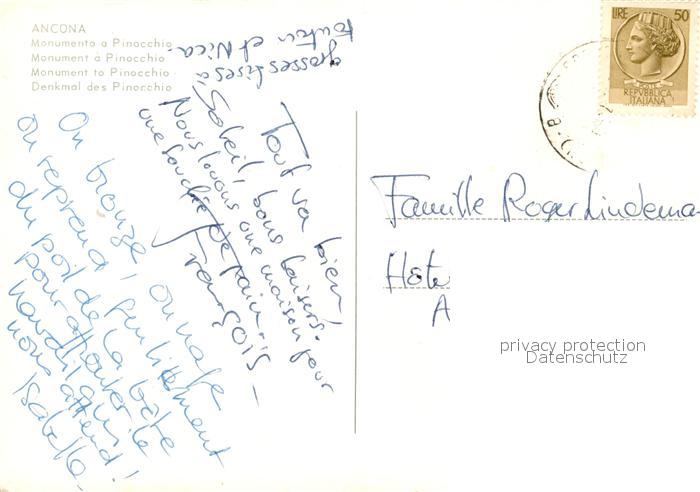 ANCONA
Monumento a Pinocchio
Monument à Pinocchio
Monument to Pinocchio
Denkmal des Pinocchio
LIRE 50
REPVBBLICA
ITALIANA
Tout va bien,
Soleil, bons baisers.
Nous louons une maison pour
une
de pain.
François –
grosses bises à
et Nica.
On bronze, on nage
on reprend gentillement
du poil de la bête
pour affronter le
travail qui
nous attend!
Isabelle
Famille Roger Lindema
Hôte
A
privacy protection
Datenschutz